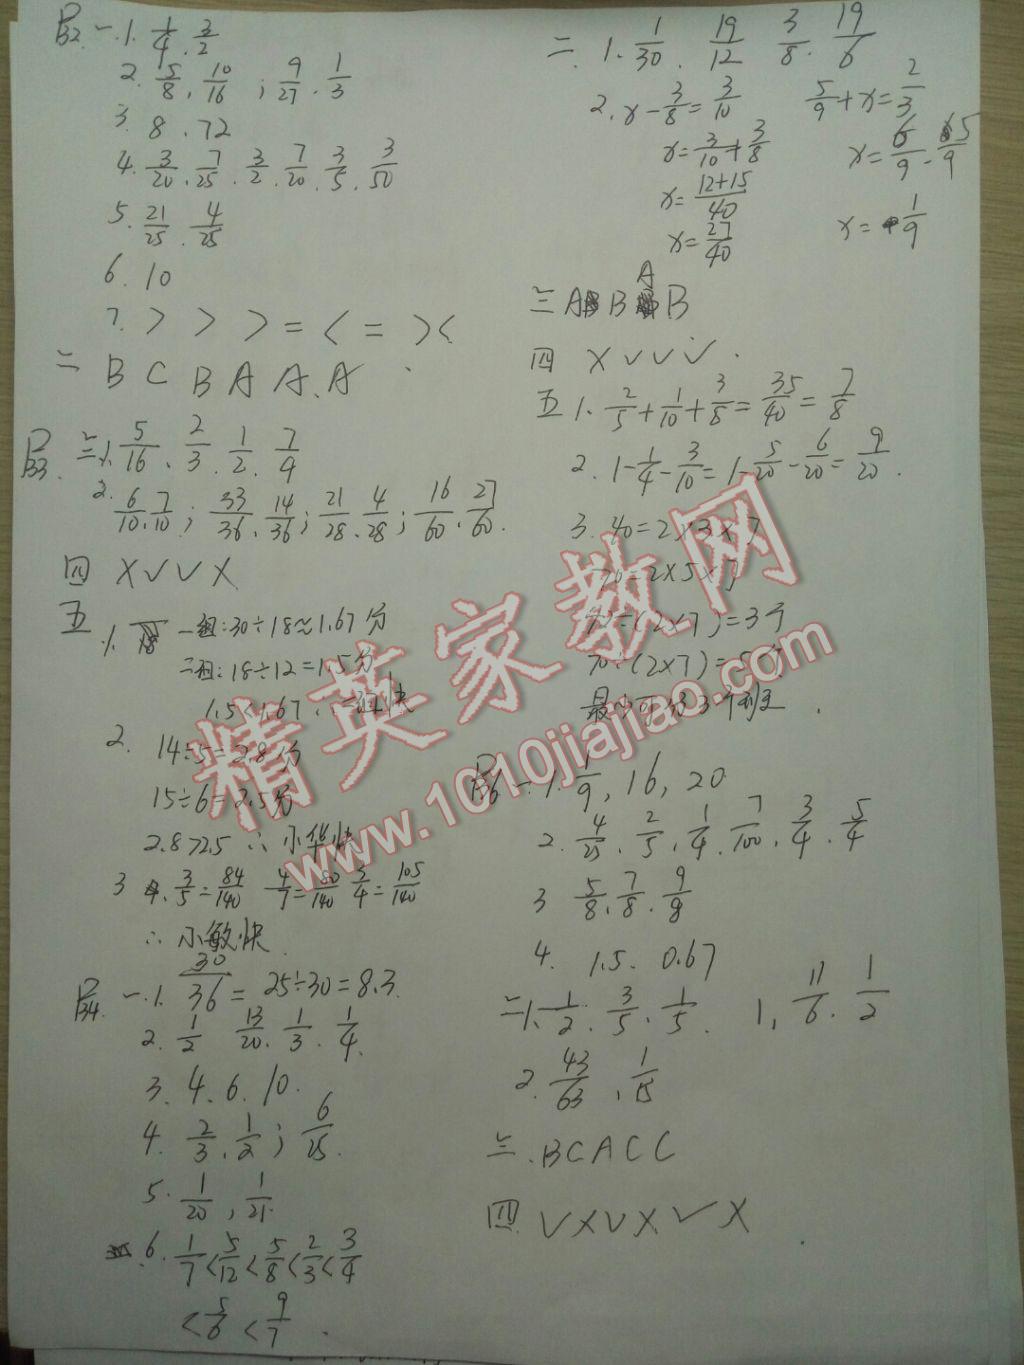 P32. 一.1. 1/4. 3/2
2. 5/8, 10/16 ; 9/27. 1/3
3. 8. 72
4. 3/20. 7/25. 3/2. 7/20. 3/5. 3/50
5. 21/25. 4/25
6. 10
7. > > > = < = > <
二 B C B A A. A
P33. 三 1. 5/16. 2/3. 1/2. 7/9
2. 6/10. 7/10 ; 33/36. 14/36 ; 21/28. 4/28 ; 16/60. 27/60.
四 X √ √ X
五
1. 一组:30÷18≈1.67分
二组:18÷12=1.5分
1.5<1.67
2. 14÷5=2.8分
15÷6=2.5分
2.8>2.5 ∴小华快
3 3/5=84/140 4/7=80/140 3/4=105/140
∴小敏快.
P34. 一.1. 30/36= 25÷30=8.3.
2. 1/2 13/20. 1/3. 1/4.
3. 4. 6. 10.
4. 2/3. 1/2 ; 6/25.
5. 1/20, 1/21.
6. 1/7<5/12<5/8<2/3<3/4
<5/6<9/7.
二. 1. 1/30. 19/12 3/8. 19/6
2. x-3/8=3/10 5/9+x=2/3
x=3/10+3/8 x=6/9-5/9
x=(12+15)/40
x=27/40 x=1/9
三 A B A B
四 X √ √ √.
五 1. 2/5+1/10+3/8=35/40=7/8
2. 1-1/4-3/10=1-5/20-6/20=9/20.
3. 40=2×3×7
70=2×5×7
÷(2×7)=3个
70÷(2×7)=5
P36 一. 1. 1/9, 16, 20
2. 4/25. 2/5. 1/4. 7/100. 3/4. 5/4
3 5/8. 7/8. 9/8
4. 1.5. 0.67
二 1. 1/2. 3/5. 1/5. 1, 11/6. 1/2
2. 43/63. 1/15
三. B C A C C
四. √ X √ X √ X
精英家教网
www.1010jiajiao.com